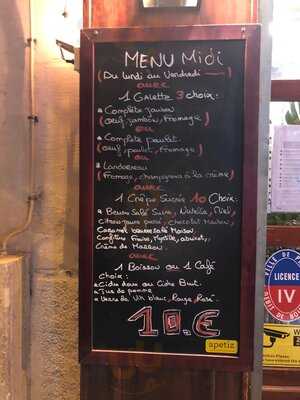 MENU Midi
(Du lundi au Vendredi)
avec
1 Galette 3 choix:
Complète jambon
(œuf, jambon, fromage)
ou
Complète poulet.
(œuf, poulet, fromage)
ou
(fromage, champignons à la crème)
avec
1 Crêpe Sucrée 10 Choix:
Beurre Salé Sucre, Nutella, Miel,
citron sucre, chocolat Maison,
Caramel beurre salé Maison
Confiture Fraise, Myrtille, abricot,
Crème de Marron
avec
1 Boisson ou 1 Café
choix:
Cidre doux ou Cidre Brut.
Jus de pomme
Verre de Vin blanc, Rouge, Rosé.
10.€
apetiz
LICENCE
IV